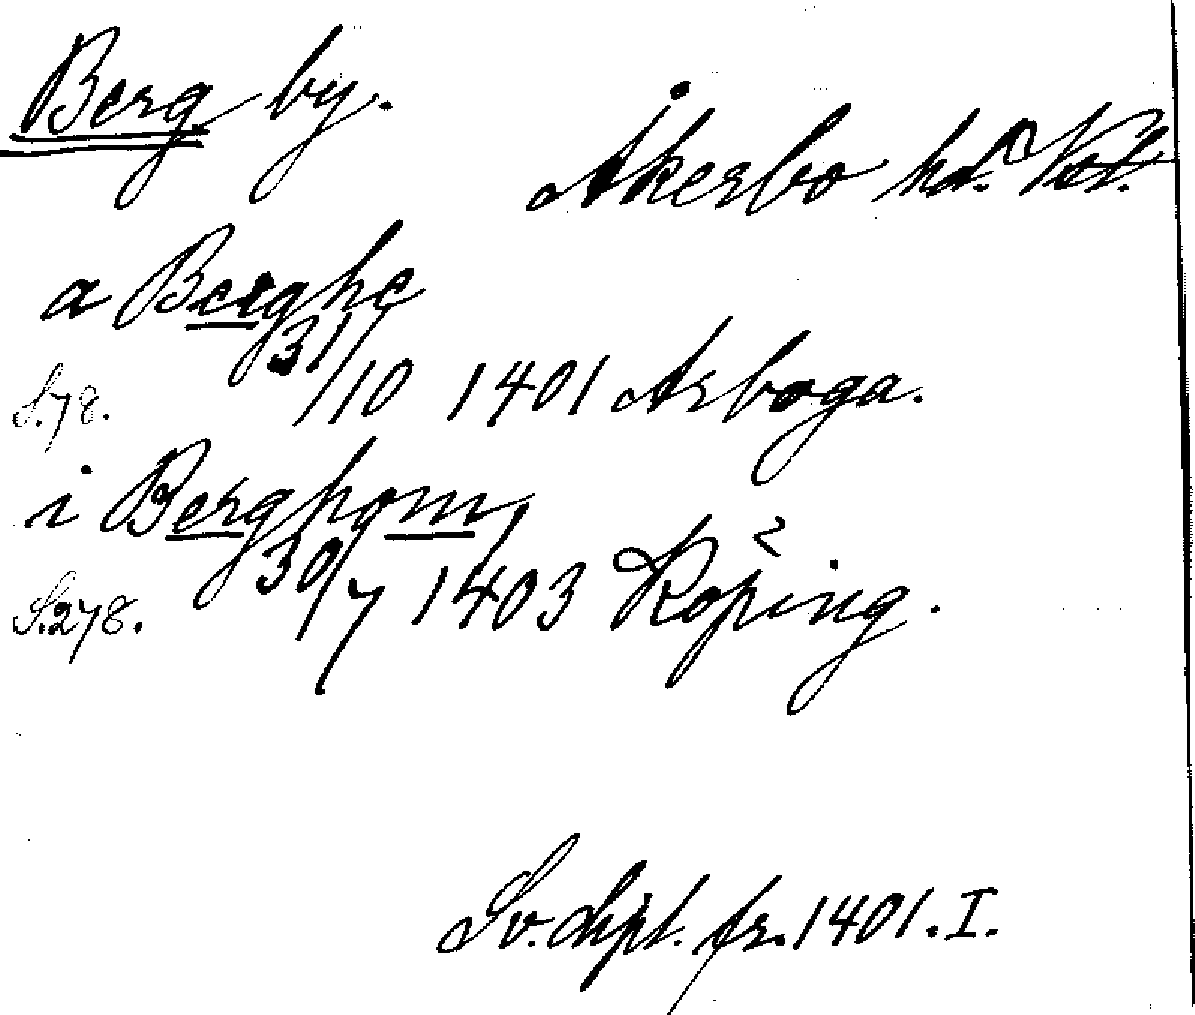 Berg by.
Åkerbo hd.
a Berghe
31/10 1401 Arboga.
S. 78.
i Berghom,
30/7 1403 Köping.
S. 278.
Sv. dipl. fr. 1401. I.